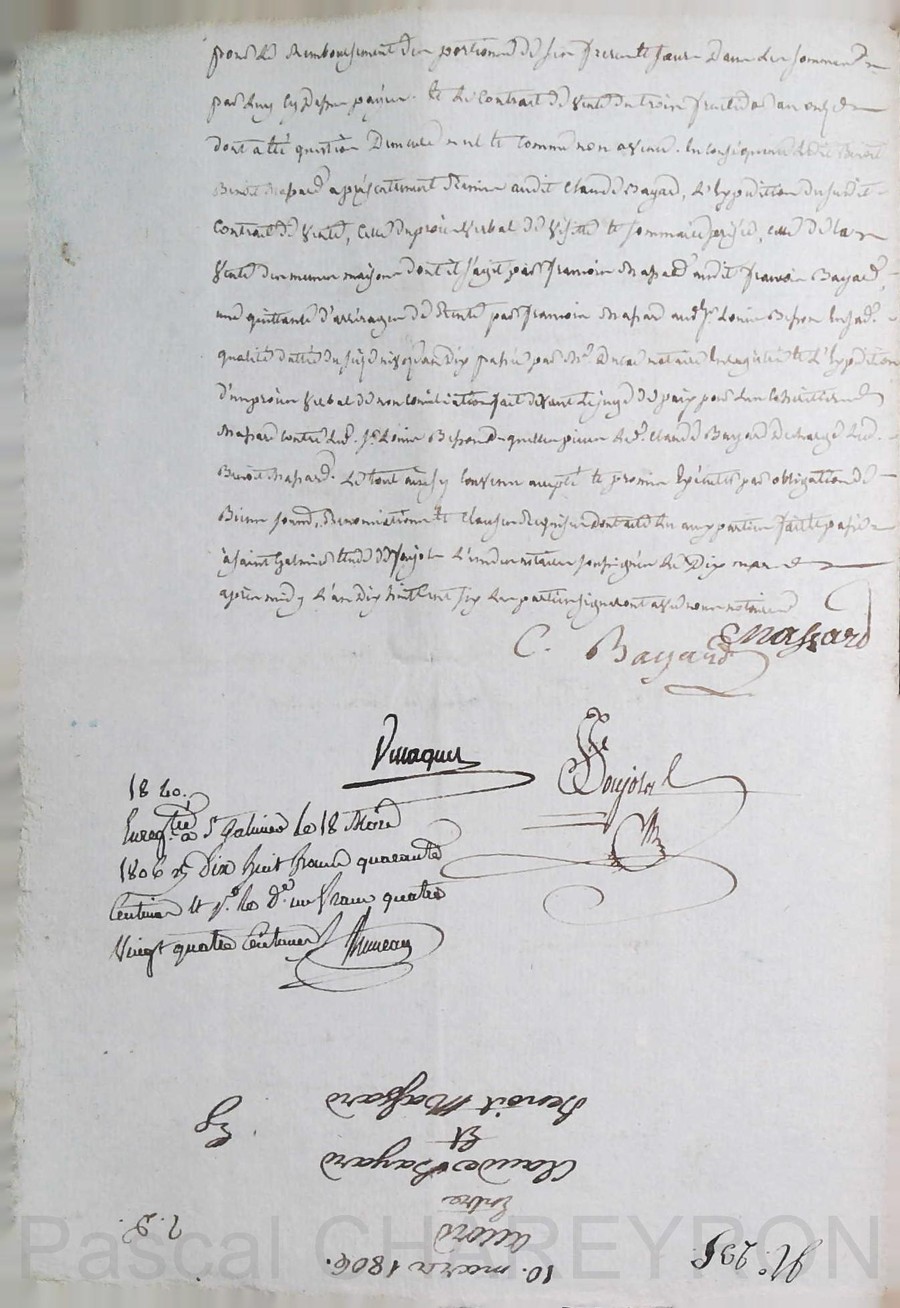 pour le Remboursement des portions de son frere et sœur dans les sommes
par luy cy dessus payées. et le Contrat de vente du trois fructidor an onze
dont a été question demeure nul et comme non avenu. En conséquence ledit Benoit
Benoit Massard a présentement Remis audit Claude Bayard, l'Expedition dudit
Contrat de vente, celle du procès verbal de visitte et sommaire prisée, celle de la
vente des memes maisons dont il s'agit par francois Massard audit francois Bayard,
une quittance d'arrérages de Rente par francois Massard aud. Sr. Louis Besson
qualité dattée du nivose an dix passée par Me. notaire Enregistrée et l'Expedition
d'un procès verbal de non conciliation fait devant le juge de paix pour
Massard contre led. Sr. Louis Besson desquelles pieces led. Claude Bayard decharge led.
Benoit Massard. Le tout ainsy Convenu accepté et promis Exécuter par obligation de
Biens, soumd., Renonciations et Clauses Requises dont acte lu aux parties fait et passé
à Saint Galmier Etude de Soujol l'un des notaires soussignés le Dix mars
après midy l'an Dix huit Cent six les parties signeront avec nous notaires
C. Bayard Massard
Soujol
18 20.
Enregtré à St Galmier Le 18 Mars
1806 Dix huit francs quarante
Centimes et pr. le de. un franc quatre
Vingt quatre Centimes
No. 295.
10. mars 1806.
Accord
Entre
Claude Bayard
Et
Benoit Massard
Pascal CHAREYRON